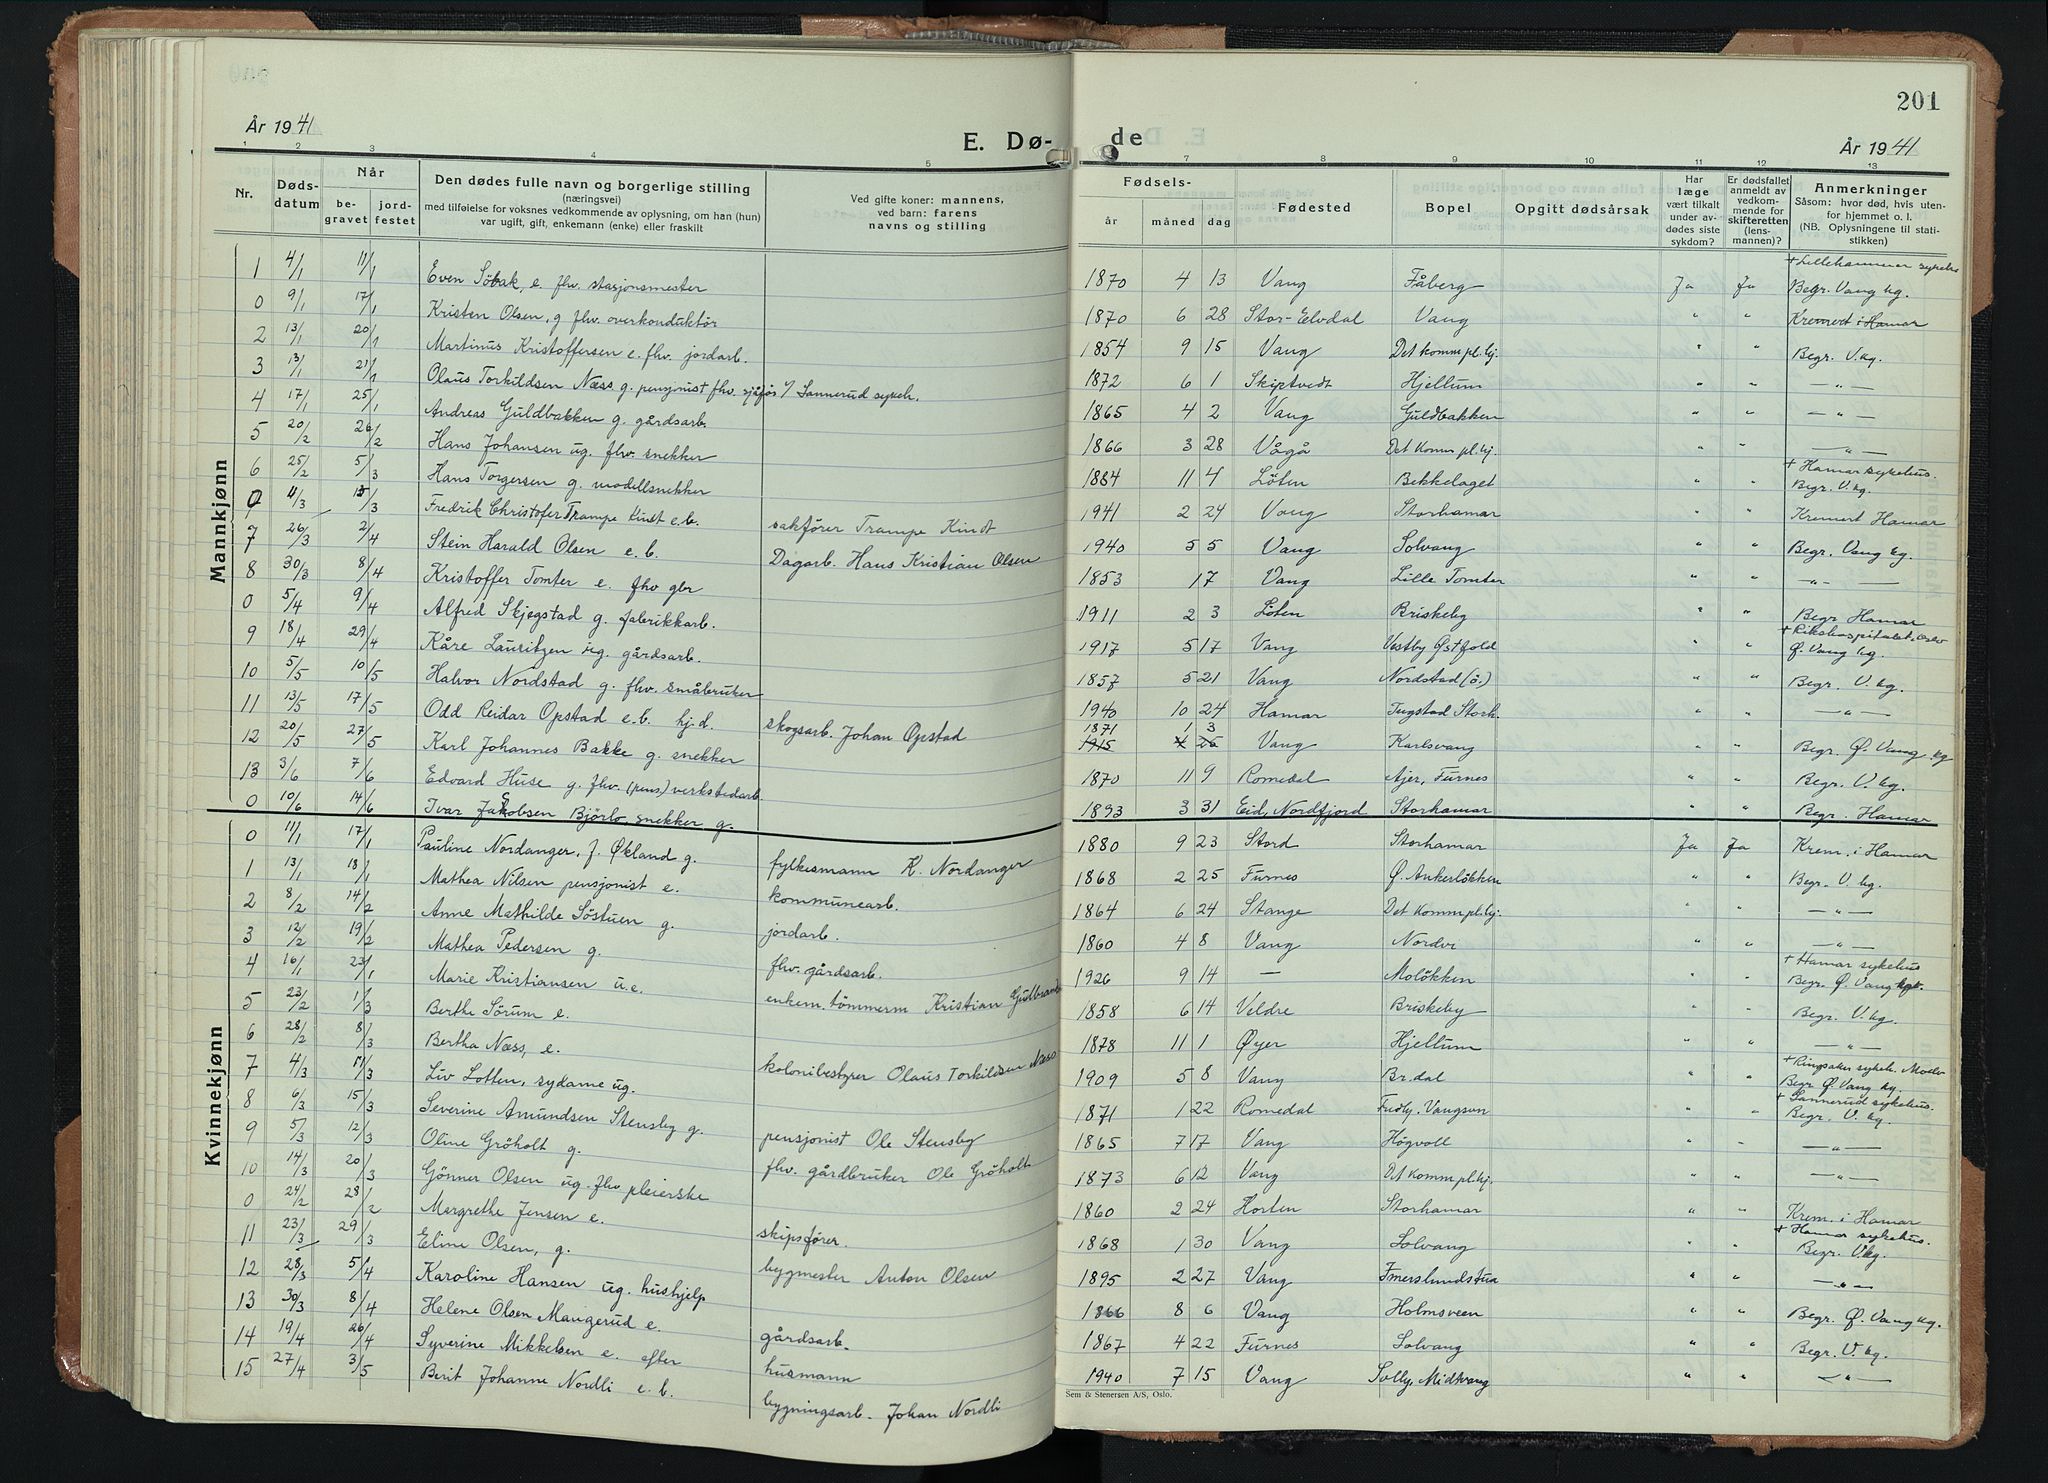 201
År 1941
E. Dø-
de
År 1941
1 2 3 4 5 7 8 9 10 11 12 13
Nr.
Døds-
datum
Når
be-
gravet
jord-
festet
Den dødes fulle navn og borgerlige stilling
(næringsvei)
med tilføielse for voksnes vedkommende av oplysning, om han (hun)
var ugift, gift, enkemann (enke) eller fraskilt
Ved gifte koner: mannens,
ved barn: farens
navns og stilling
Fødsels-
år måned dag
Fødested
Bopel
Opgitt dødsårsak
Har
læge
vært tilkalt
under av-
dødes siste
sykdom?
Er dødsfallet
anmeldt av
vedkom-
mende for
skifteretten
(lens-
mannen)?
Anmerkninger
Såsom: hvor død, hvis uten-
for hjemmet o. l.
(NB. Oplysningene til stati-
stikken)
Mannkjønn
1 4/1 11/1 Even Söbak, e. fhv. stasjonsmester 1870 4 13 Vang Fåberg Ja Ja + Lillehammer sykehs
Begr. Vang kg.
0 9/1 17/1 Kristen Olsen, g fhv. overkonduktör 1870 6 28 Stor-Elvdal Vang " " Kremert i Hamar
2 13/1 20/1 Martinus Kristoffersen e. fhv. jordarb. 1854 9 15 Vang Det komm pl. hj. " " Begr. V. kg.
3 13/1 21/1 Olaus Torkildsen Næss g. pensjonist fhv. sjåför v/ Sannerud sykeh. 1872 6 1 Skiptvedt Hjellum " " — " —
4 17/1 25/1 Andreas Guldbakken g. gårdsarb. 1865 4 2 Vang Guldbakken " " — " —
5 20/2 26/2 Hans Johansen ug. fhv. snekker 1866 3 28 Vågå Det Komm pl. hj. " " — " —
6 25/2 5/3 Hans Torgersen g. modellsnekker 1884 11 4 Löten Bekkelaget " " + Hamar sykehus.
Begr. V. kg.
0 4/3 15/3 Fredrik Christofer Trampe Kindt e.b. sakförer Trampe Kindt 1941 2 24 Vang Storhamar " " Kremert Hamar
7 26/3 2/4 Stein Harald Olsen e. b. Dagarb. Hans Kristian Olsen 1940 5 5 Vang Solvang " " Begr. Vang kg.
8 30/3 8/4 Kristoffer Tomter e. fhv gbr 1853 1 7 Vang Lille Tomter " " — " —
0 5/4 9/4 Alfred Skjegstad g. fabrikkarb. 1911 2 3 Löten Briskeby " " Begr Hamar
9 18/4 29/4 Kåre Lauritzen ug. gårdsarb. 1917 5 17 Vang Vestby Østfold " " + Rikshospitalet. Oslo
Ø. Vang kg.
10 5/5 10/5 Halvor Nordstad g. fhv. småbruker 1857 5 21 Vang Nordstad (ö.) " " Begr. V. kg.
11 13/5 17/5 Odd Reidar Opstad e.b. hj.d. skogsarb. Johan Opstad 1940 10 24 Hamar Tugstad Storh. " " — " —
12 20/5 27/5 Karl Johannes Bakke g. snekker 1871 1 3 Vang Karlsvang " " Begr. Ø. Vang kg
13 3/6 7/6 Edvard Huse g. fhv. (pens) verkstedarb. 1870 11 9 Romedal Ajer, Furnes " " Begr. V. kg.
0 10/6 14/6 Ivar Jakobsen Björlo, snekker g. 1893 3 31 Eid, Nordfjord Storhamar " " Begr. Hamar
Kvinnekjønn
0 11/1 17/1 Pauline Nordanger, f. Økland g. fylkesmann K. Nordanger 1880 9 23 Stord Storhamar Ja Ja Krem. i Hamar
1 13/1 18/1 Mathea Nilsen pensjonist e. kommunearb. 1868 2 25 Furnes Ø. Ankerlökken " " Begr. V. kg.
2 8/2 14/2 Anne Mathilde Söstuen g. jordarb. 1864 6 24 Stange Det Komm pl. hj. " " — " —
3 12/2 19/2 Mathea Pedersen g. fhv. gårdsarb. 1860 4 8 Vang Nordvi " " — " —
4 16/1 23/1 Marie Kristiansen u.e. enkem. tömmerm Kristian 1926 9 14 — Molökken " " + Hamar sykehus
Begr. Ø. Vang kg.
5 23/2 1/3 Berthe Sörum e. 1858 6 14 Veldre Briskeby " Begr. V. kg.
6 28/2 8/3 Bertha Næss, e. kolonibestyrer Olaus Torkildsen Næss 1878 11 1 Øyer Hjellum " " — " —
7 4/3 11/3 Liv Lotten, sydame ug. 1909 5 8 Vang Br.dal " " + Ringsaker sykeh. Moelv
Begr Ø. Vang kg.
8 6/3 15/3 Severine Amundsen Stensby g. pensjonist Ole Stensby 1871 1 22 Romedal Fredly. Vangsvn " " + Sannerud sykehus.
Begr. V. kg.
9 5/3 12/3 Oline Gröholt g. fhv. gårdbruker Ole Gröholt 1865 7 17 Vang Högvoll " " — " —
10 14/3 20/3 Gönner Olsen ug. fhv pleierske 1873 6 12 Vang Det Komm pl. hj. " " — " —
0 24/2 28/2 Margrethe Jensen e. skipsförer. 1860 2 24 Horten Storhamar " " Krem. i Hamar
11 23/3 29/3 Eline Olsen, g. bygmester Anton Olsen 1868 1 30 Vang Solvang " " + Hamar sykehus.
Begr. V. kg.
12 28/3 5/4 Karoline Hansen ug. hushjelp 1895 2 27 Vang Imerslundstua " " — " —
13 30/3 8/4 Helene Olsen Maugerud e. gårdsarb. 1866 8 6 Vang Holmsveen " " Begr. Ø. Vang kg.
14 19/4 26/4 Syverine Mikkelsen e. efter husmann 1867 4 22 Furnes Solvang " " Begr. V. kg.
15 27/4 3/5 Berit Johanne Nordli e. b. bygningsarb. Johan Nordli 1940 7 15 Vang Solly, Midtvang " " — " —
Sem & Stenersen A/S, Oslo.